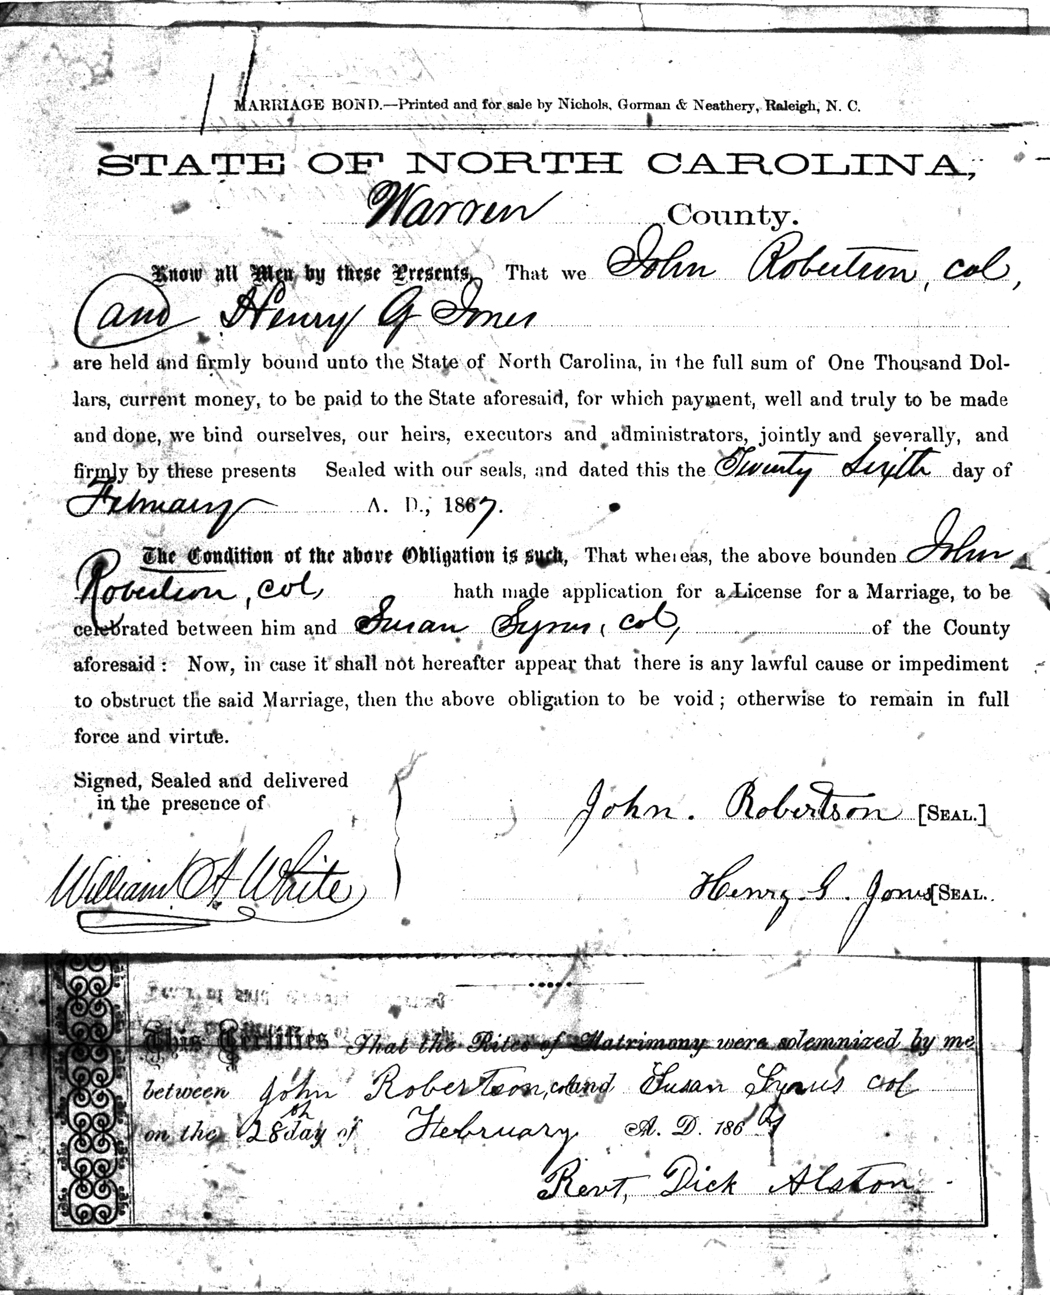 MARRIAGE BOND.—Printed and for sale by Nichols, Gorman & Neathery, Raleigh, N. C.
STATE OF NORTH CAROLINA,
Warren County.
Know all Men by these Presents, That we John Robertson, col,
and Henry G Jones
are held and firmly bound unto the State of North Carolina, in the full sum of One Thousand Dol-
lars, current money, to be paid to the State aforesaid, for which payment, well and truly to be made
and done, we bind ourselves, our heirs, executors and administrators, jointly and severally, and
firmly by these presents Sealed with our seals, and dated this the Twenty Sixth day of
February A. D., 1867.
The Condition of the above Obligation is such, That whereas, the above bounden John
Robertson, col, hath made application for a License for a Marriage, to be
celebrated between him and Susan Synus, col, of the County
aforesaid: Now, in case it shall not hereafter appear that there is any lawful cause or impediment
to obstruct the said Marriage, then the above obligation to be void; otherwise to remain in full
force and virtue.
Signed, Sealed and delivered
in the presence of
John. Robertson [SEAL.]
William A White
Henry. G. Jones [SEAL.
This Certifies That the Rites of Matrimony were solemnized by me
between John Robertson, col and Susan Synus col
on the 28th day of February A. D. 1867
Revt, Dick Alston